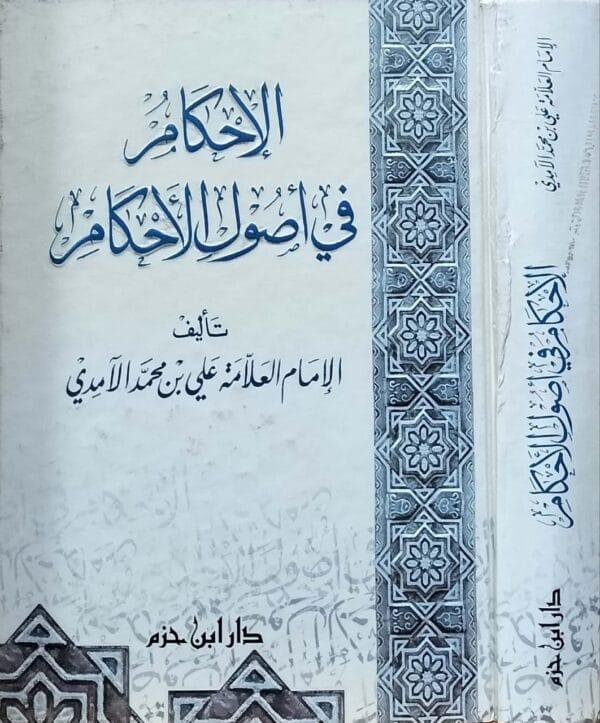 الإحكام
في أصول الأحكام
تأليف
الإمام العلّامة علي بن محمد الآمدي
دار ابن حزم
الإمام العلّامة علي بن محمد الآمدي
الإحكام في أصول الأحكام
دار ابن حزم